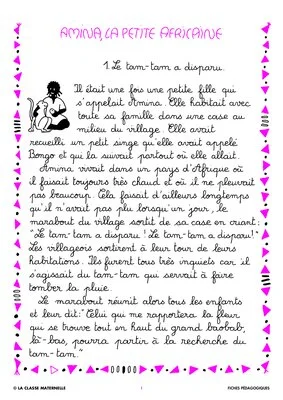 AMINA, LA PETITE AFRICAINE
1. Le tam-tam a disparu.
Il était une fois une petite fille qui
s'appelait Amina. Elle habitait avec
toute sa famille dans une case au
milieu du village. Elle avait
recueilli un petit singe qu'elle avait appelé
Bongo et qui la suivait partout où elle allait.
Amina vivait dans un pays d'Afrique où
il faisait toujours très chaud et où il ne pleuvait
pas beaucoup. Cela faisait d'ailleurs longtemps
qu'il n'avait pas plu lorsqu'un jour, le
marabout du village sortit de sa case en criant:
"Le tam-tam a disparu! Le tam-tam a disparu!"
Les villageois sortirent à leur tour de leurs
habitations. Ils furent tous très inquiets car il
s'agissait du tam-tam qui servait à faire
tomber la pluie.
Le marabout réunit alors tous les enfants
et leur dit: "Celui qui me rapportera la fleur
qui se trouve tout en haut du grand baobab,
là-bas, pourra partir à la recherche du
tam-tam."
© LA CLASSE MATERNELLE
1
FICHES PÉDAGOGIQUES